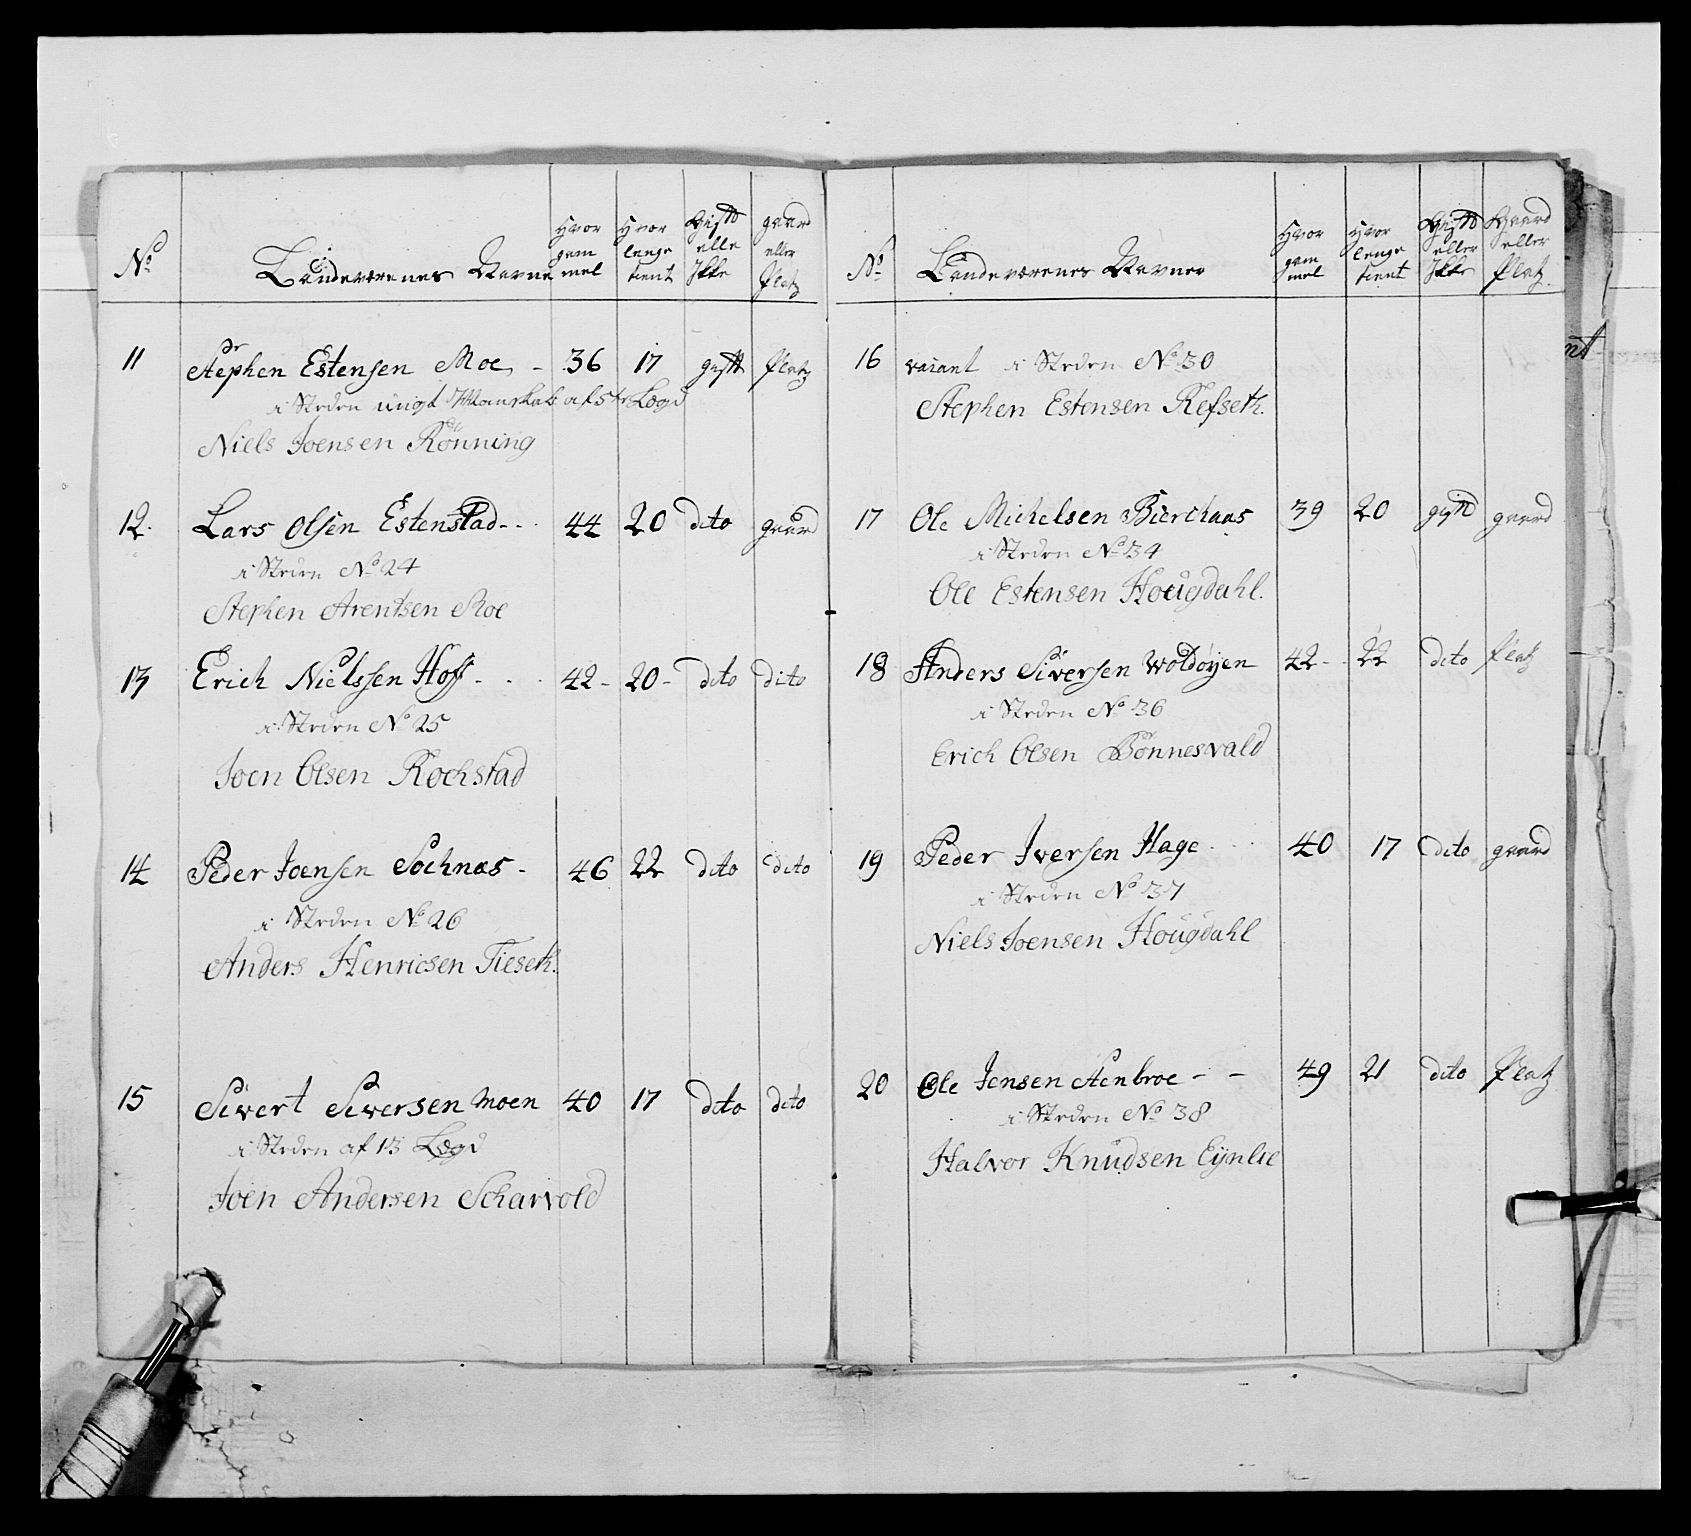 No Landeværenes Navne Hvor gammel Hvor lenge tient Gift elle Ikke gaard eller Platz
11 Stephen Estensen Moe - 36 17 gift Platz
i Steden ungt Mandskab af 5te Lægd
Niels Joensen Rönning
12. Lars Olsen Estenstad - - . 44 20 dito gaard
i Steden No 24
Stephen Arentsen Moe
13 Erich Nielssen Hoff - . . 42 - 20 - dito dito
i Steden No 25
Joen Olsen Rochstad
14 Peder Joensen Sochnæs - 46 22 dito dito
i Steden No 26
Anders Henricsen Tieseth.
15 Sivert Siversen Moen 40 17 dito dito
i Steden af 13 Lægd
Joen Andersen Scharvold
No Landeværenes Navner Hvor gammel Hvor lenge tient Gift eller Ikke Gaard eller Platz
16 vacant i Steden No 30
Stephen Estensen Refseth.
17 Ole Michelsen Bierchaas 39 20 gift gaard
i Steden No 34
Ole Estensen Hougdahl.
18 Anders Siversen Woldöyen 42 - 22 dito Platz
i Steden No 36
Erich Olsen Bönnesvald
19 Peder Iversen Hage 40 17 dito gaard
i Steden No 37
Niels Joensen Hougdahl
20 Ole Jensen Stenbroe - - 49 21 dito Platz
i Steden No 38
Halvor Knudsen Eynlie